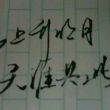 上升明月
天涯共此